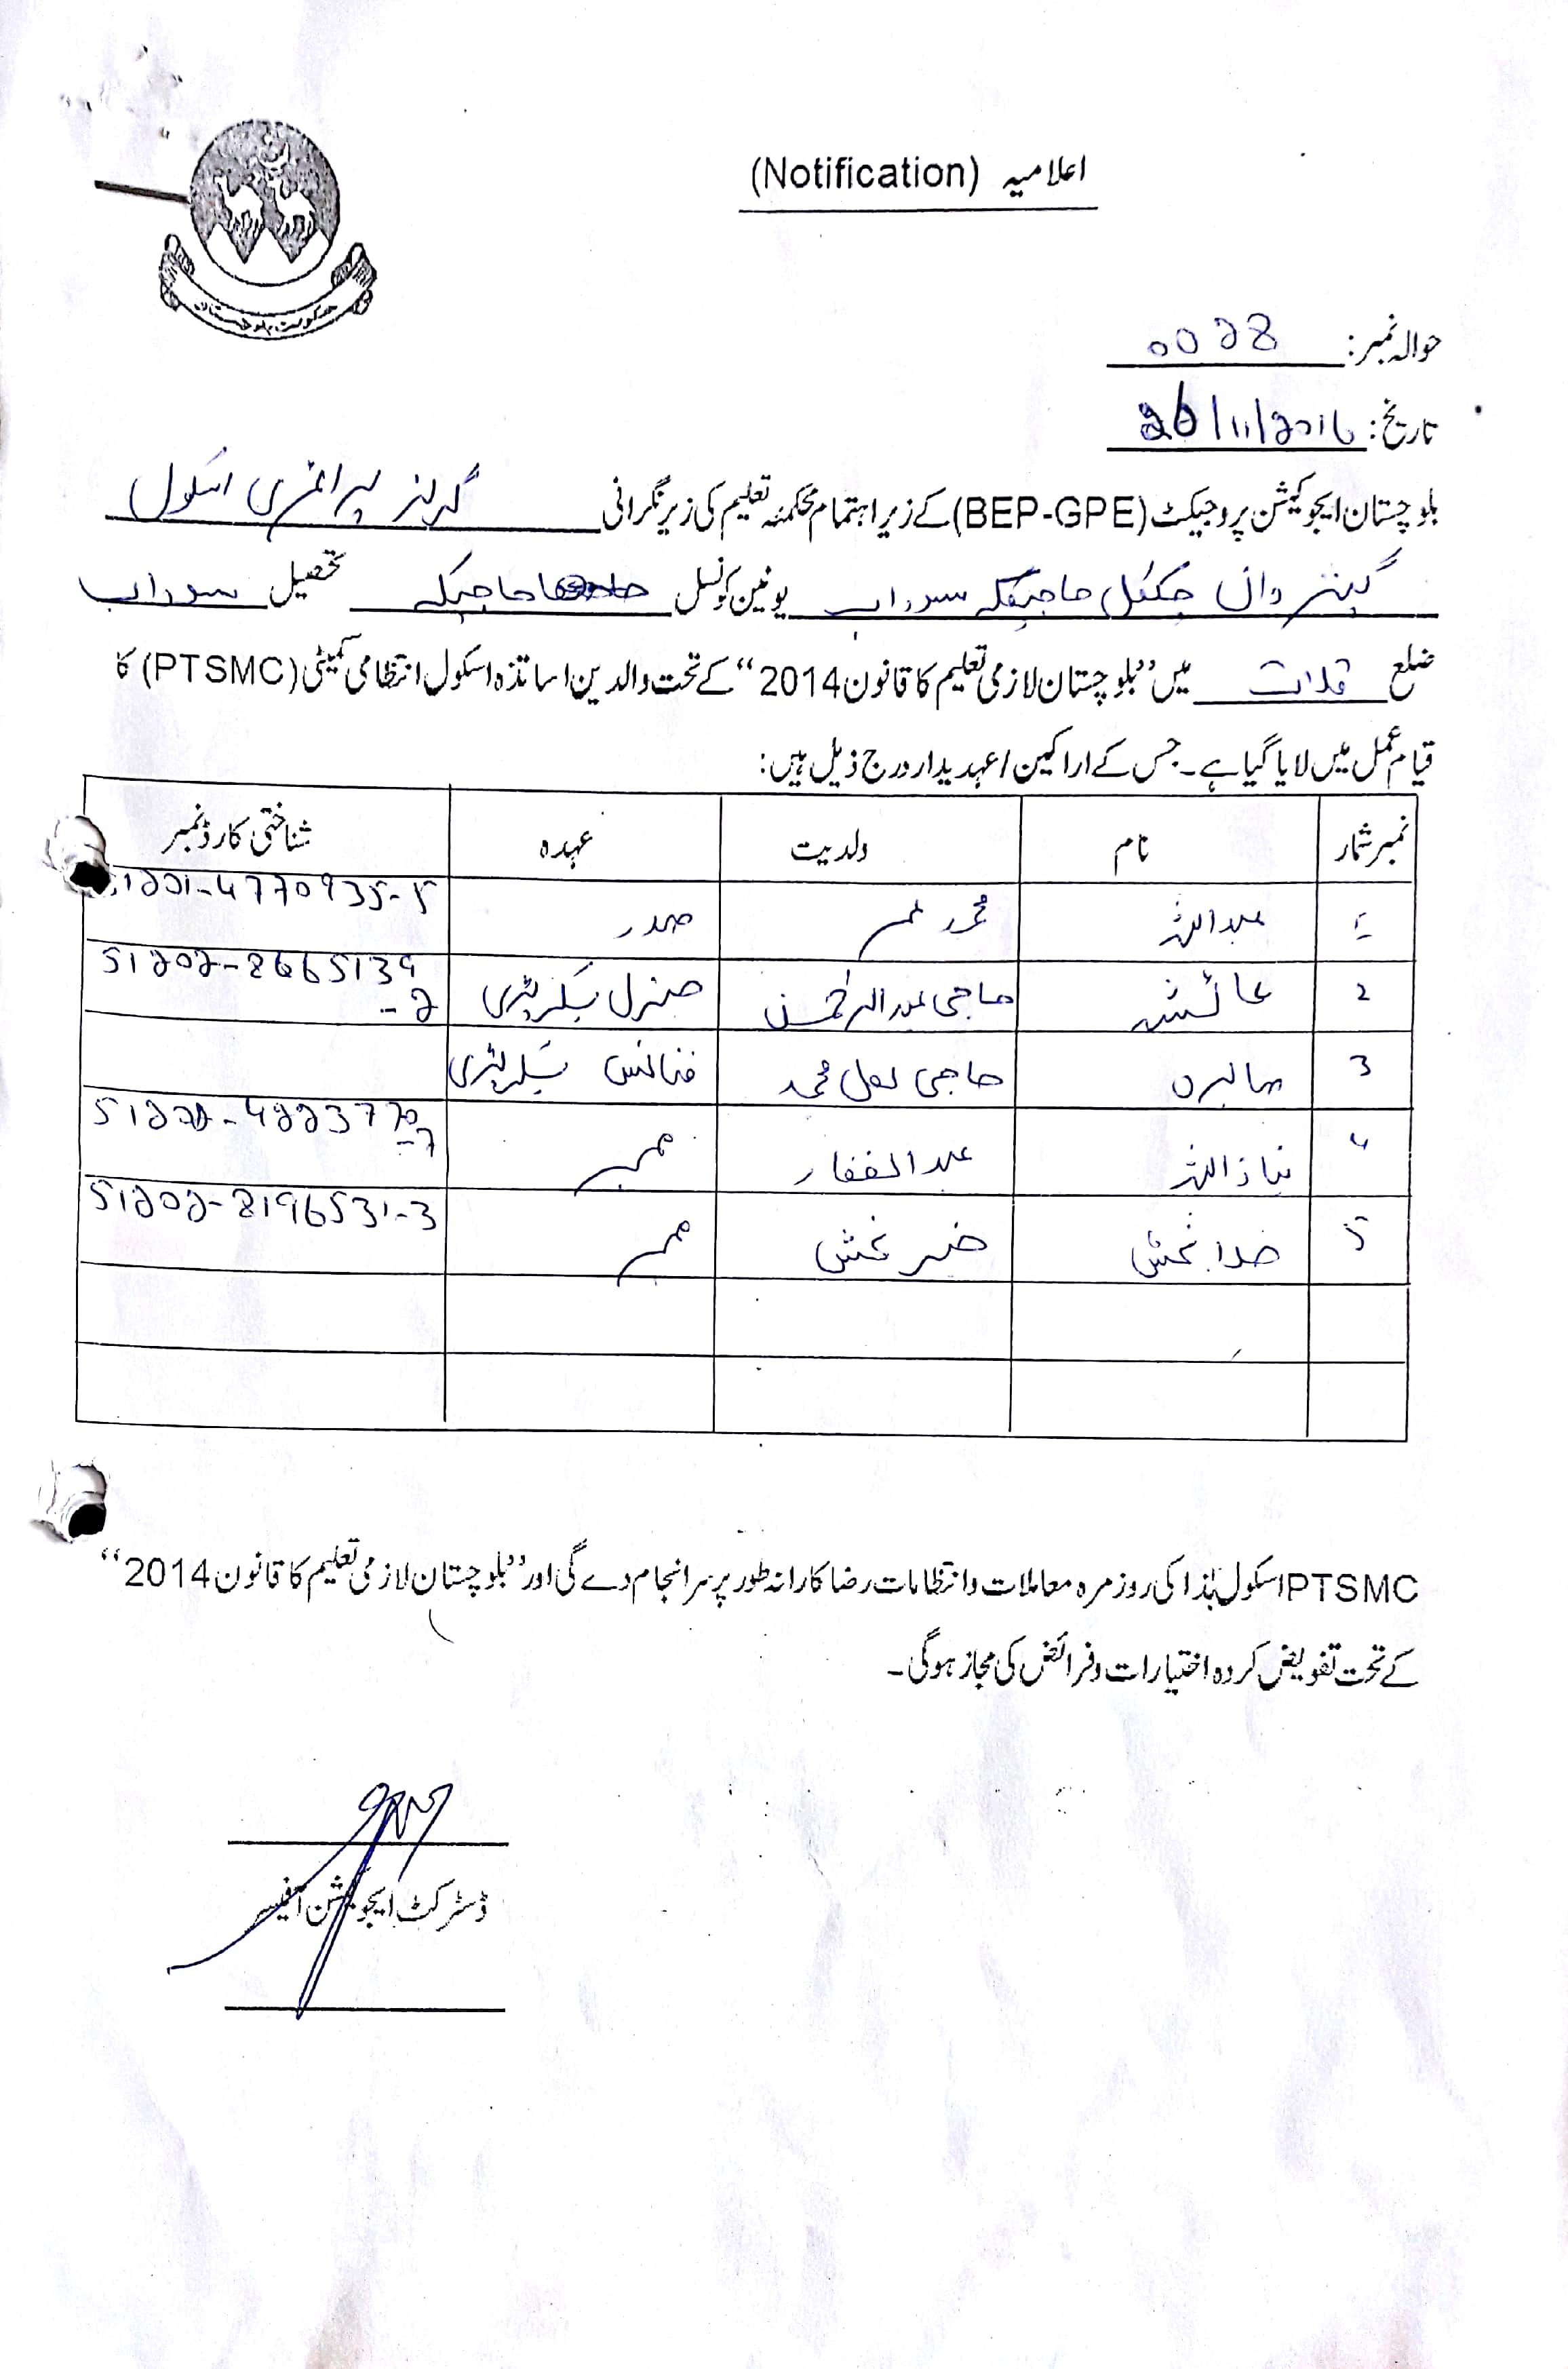 اعلامیہ (Notification)
حکومت بلوچستان
حوالہ نمبر: 0028
تاریخ: 26/11/2016
بلوچستان ایجوکیشن پروجیکٹ (BEP-GPE) کے زیر اہتمام محکمہ تعلیم کی زیر نگرانی گرلز پرائمری اسکول
حاجیکہ سوراب یونین کونسل حاجیکہ تحصیل سوراب
ضلع قلات میں ”بلوچستان لازمی تعلیم کا قانون 2014“ کے تحت والدین اساتذہ اسکول انتظامی کمیٹی (PTSMC) کا
قیام عمل میں لایا گیا ہے۔ جس کے اراکین / عہدیدار درج ذیل ہیں:
نمبر شمار نام ولدیت عہدہ شناختی کارڈ نمبر
1 عبداللہ محمد عمر صدر 51201-4770935-5
2 عائشہ حاجی عبدالرحمٰن جنرل سیکریٹری 51202-8665139-2
3 صابرہ حاجی لعل محمد فنانس سیکریٹری
4 نیاز اللہ عبدالغفار ممبر
5 خدا بخش خیر بخش ممبر 51202-8196531-3
PTSMC اسکول ہٰذا کی روزمرہ معاملات و انتظامات رضا کارانہ طور پر سر انجام دے گی اور ”بلوچستان لازمی تعلیم کا قانون 2014“
کے تحت تفویض کردہ اختیارات و فرائض کی مجاز ہوگی۔
ڈسٹرکٹ ایجوکیشن آفیسر